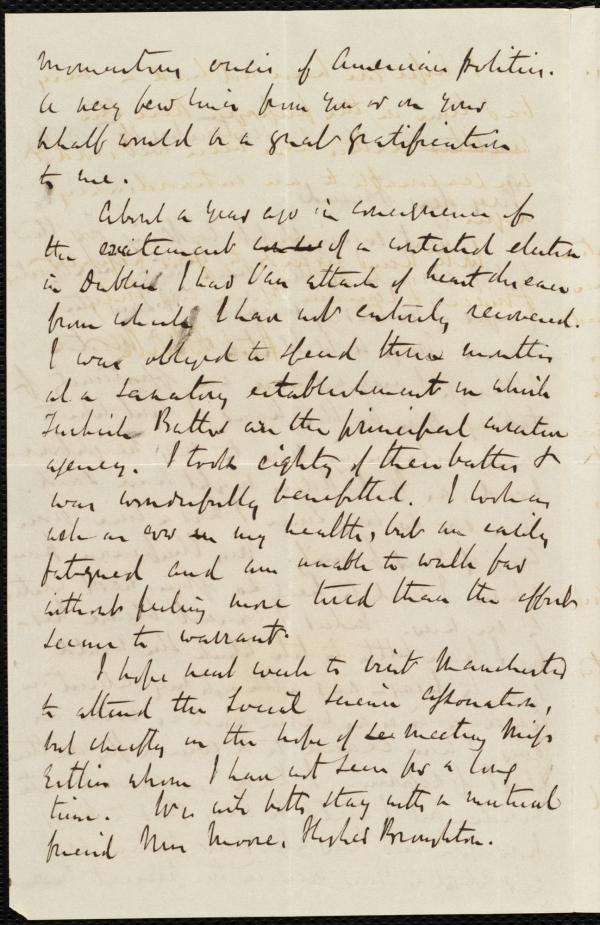 momentous crisis of American politics.
A very few lines from you or on your
behalf would be a great gratification
to me.
About a year ago in consequence of
the excitement of a contested election
in Dublin I had an attack of heart disease
from which I have not entirely recovered.
I was obliged to spend three months
at a sanatory establishment in which
Turkish Baths are the principal curative
agency. I took eighty of these baths &
was wonderfully benefitted. I look as
well as ever in my health, but am easily
fatigued and am unable to walk far
without feeling more tired than the effort
seems to warrant.
I hope next week to visit Manchester
to attend the Social Science Association,
but chiefly in the hope of meeting Miss
Estlin whom I have not seen for a long
time. We will both stay with a mutual
friend Mrs Moore, Higher Broughton.